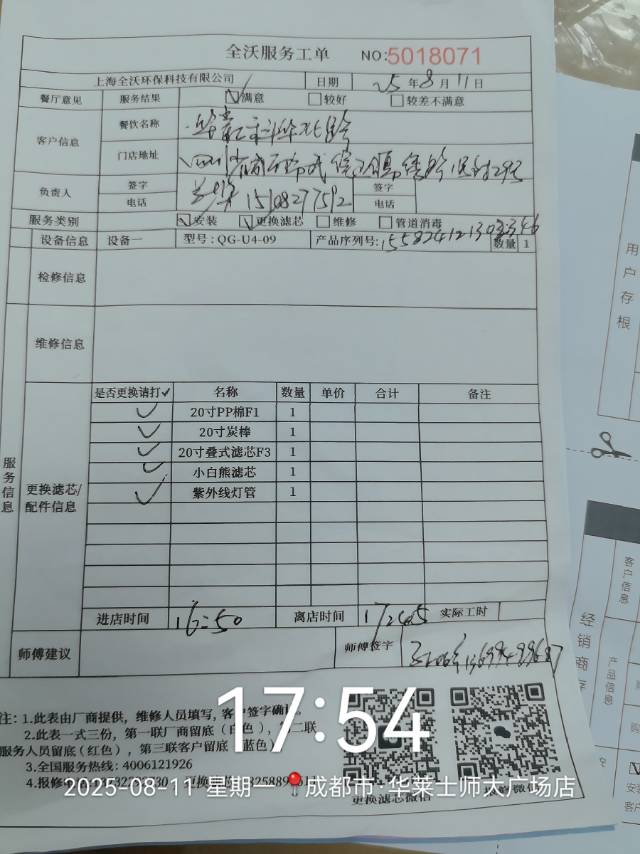 全沃服务工单 NO:5018071
上海全沃环保科技有限公司 日期 25年8月11日
餐厅意见 服务结果 满意 较好 较差不满意
客户信息 餐饮名称
门店地址
负责人 签字 签字
电话 15108277592 电话
服务类别 安装 更换滤芯 维修 管道消毒
设备信息 设备一 型号:QG-U4-09 产品序列号: 数量 1
检修信息
维修信息
服务信息
更换滤芯/配件信息
是否更换请打✓ 名称 数量 单价 合计 备注
✓ 20寸PP棉F1 1
✓ 20寸炭棒 1
✓ 20寸叠式滤芯F3 1
✓ 小白熊滤芯 1
✓ 紫外线灯管 1
进店时间 16:50 离店时间 实际工时
师傅建议 师傅签字
注:1.此表由厂商提供,维修人员填写,客户签字确认
2.此表一式三份,第一联厂商留底(白色),第二联
服务人员留底(红色),第三联客户留底(蓝色)
3.全国服务热线:4006121926
更换滤芯微信
17:54
2025-08-11 星期一 成都市·华莱士师大广场店
用户存根
客户信息
经销商存
产品信息